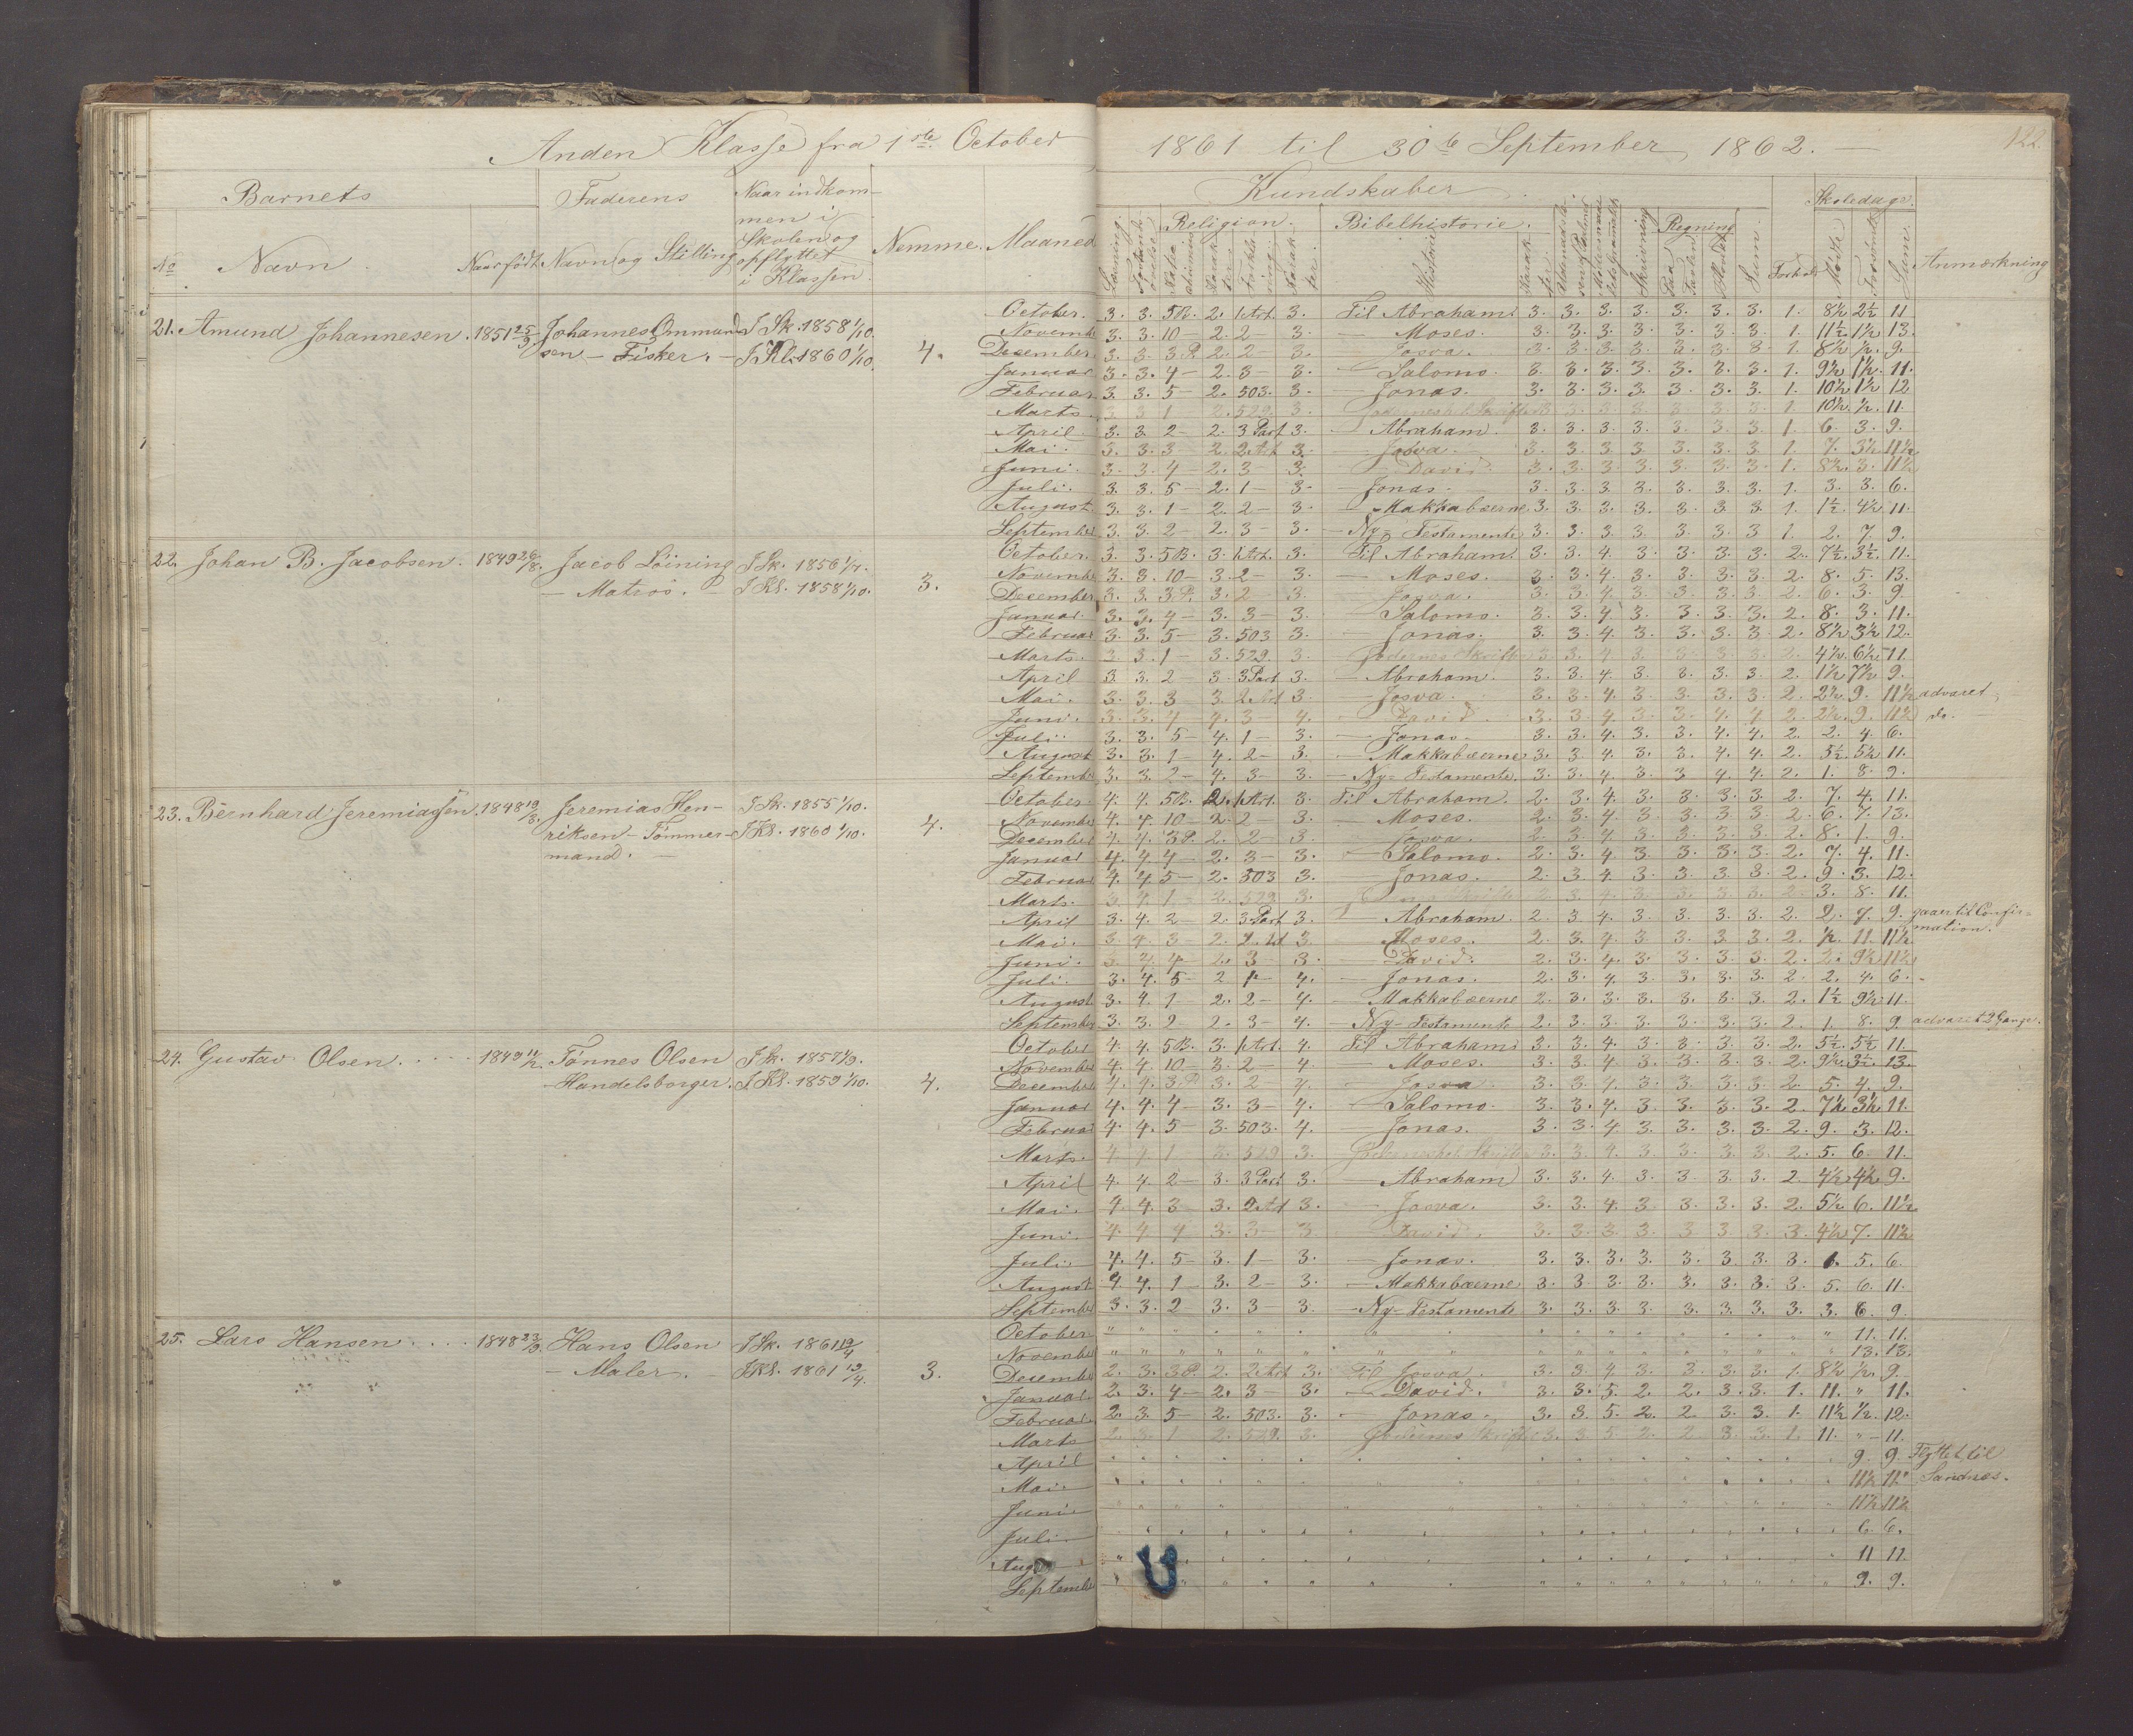 Anden Klasse fra 1ste October 1861 til 30te September 1862. —
122.
Barnets
Faderens
Naar indkommen i Skolen og opflyttet i Klassen
Nemme.
Maaned
Kundskaber
Skoledage.
No
Navn.
Naar født
Navn og Stilling
Læsning.
Religion.
Bibelhistorie.
Historie
Skrivning
Regning
Paa Tavlen
Hovedet
Sum.
Forhold
Mødte
Forsømte
Sum
Anmærkning
21. Amund Johannesen. 1851 25/9 Johannes Ommund- I Sk. 1858 1/10.
sen — Fisker. — I Kl. 1860 1/10. 4.
October. 3. 3. 5B. 2. 1 Art. 3. Til Abraham. 3. 3. 3. 3. 3. 3. 3. 1. 8½ 2½ 11
Novemb. 3. 3. 10 — 2. 2 — 3. — Moses. 3. 3. 3. 3. 3. 3. 3. 1. 11½ 1½ 13.
December. 3. 3. 3 P. 2. 2 3. Josva. 3. 3. 3. 3. 3. 3. 3. 1. 8½ ½. 9.
Januar 3. 3. 4 — 2. 3 — 3. — Salomo. 3. 3. 3. 3. 3. 3. 3. 1. 9½ 1½. 11.
Februar 3. 3. 5 — 2. 503. 3. — Jonas. 3. 3. 3. 3. 3. 3. 3. 1. 10½ 1½ 12
Marts. 3 3 1 2. 529. 3. 3 3. 3. 3. 3 3. 3. 1. 10½. ½. 11.
April 3. 3. 2 — 2. 3 Part 3. — Abraham. 3. 3. 3. 3. 3. 3. 3. 1. 6. 3. 9.
Mai. 3. 3. 3 2. 2 Art 3. — Josva. 3. 3. 3. 3. 3. 3. 3. 1. 7. 3½ 11½
Juni. 3. 3. 4 — 2. 3 — 3. — David. 3. 3. 3. 3. 3. 3. 3. 1. 8½. 3. 11½
Juli. 3. 3. 5 — 2. 1 — 3. — Jonas. 3. 3. 3. 3. 3. 3. 3. 1. 3. 3. 6.
August. 3. 3. 1 — 2. 2 — 3. — Makkabæerne 3. 3. 3. 3. 3. 3. 3. 1. 1½. 4½ 11.
September 3. 3. 2 — 2. 3 — 3. — Ny-Testamente 3. 3. 3. 3. 3. 3. 3. 1. 2. 7. 9.
22. Johan B. Jacobsen. 1849 26/8. Jacob Löining I Sk. 1856 1/4.
— Matros. — I Kl. 1858 1/10. 3.
October. 3. 3. 5B. 3. 1 Art. 3. Til Abraham. 3. 3. 4. 3. 3. 3. 3. 2. 7½. 3½. 11.
Novemb. 3. 3. 10 — 3. 2 — 3. — Moses. 3. 3. 4. 3. 3. 3. 3. 2. 8. 5. 13.
December 3. 3. 3 P. 3. 2 3. Josva. 3. 3. 4. 3. 3. 3. 3. 2. 6. 3. 9
Januar. 3. 3. 4 — 3. 3 — 3. — Salomo. 3. 3. 4. 3. 3. 3. 3. 2. 8. 3. 11.
Februar 3. 3. 5 — 3. 503 3. — Jonas. 3. 3. 4. 3. 3. 3. 3. 2. 8½ 3½ 12.
Marts. 3 3. 1 — 3. 529. 3. 3. 3. 4. 3. 3. 3. 3. 2. 4½. 6½ 11.
April 3. 3. 2 — 3. 3 Part 3. — Abraham. 3. 3. 4. 3. 3. 3. 3. 2. 1½ 7½ 9.
Mai. 3. 3. 3 3. 2 Art 3 — Josva. 3. 3. 4. 3. 3. 3. 3. 2. 2½. 9. 11½ advaret
Juni. 3. 3. 4 4. 3 — 4. — David. 3. 3. 4. 3. 3. 4. 4 2. 2½. 9. 11½ do. —
Juli 3. 3. 5 — 4. 1 — 3. — Jonas. 3. 3. 4. 3. 3. 4. 4. 2. 2. 4. 6.
August 3. 3. 1 — 4. 2 — 3. — Makkabæerne 3. 3. 4. 3. 3. 4. 4. 2. 5½. 5½ 11.
Septemb. 3. 3. 2 — 4. 3 — 3. — Ny-Testamente. 3. 3. 4. 3. 3 4. 4. 2. 1. 8. 9.
23. Bernhard Jeremiassen. 1848 19/3. Jeremias Hen- I Sk. 1855 1/10.
riksen — Tömmer- I Kl. 1860 1/10. 4.
mand. —
October. 4. 4. 5B. 2. 1 Art. 3. Til Abraham. 2. 3. 4. 3. 3. 3. 3. 2. 7. 4. 11.
November 4. 4. 10 — 2. 2 — 3. — Moses. 2. 3. 4. 3. 3. 3. 3. 2. 6. 7. 13.
December 4. 4. 3 P. 2. 2 — 3 Josva. 2. 3. 4. 3. 3. 3. 3. 2. 8. 1. 9.
Januar 4. 4. 4 — 2. 3 — 3. — Salomo. 2. 3. 4. 3. 3. 3. 3. 2. 7. 4. 11.
Februar 4. 4. 5 — 2. 503 3. — Jonas. 2. 3. 4. 3. 3. 3. 3. 2. 9. 3. 12.
Marts. 3. 4. 1 2. 529 3. 2. 3. 8. 11.
April 3. 4. 2 — 2. 3 Part 3. — Abraham. 2. 3 4. 3. 3. 3. 3. 2. 2. 7. 9. gaaer til Confir-
mation.
Mai. 3. 4. 3 — 2. 2 Art 3. — Moses. 2. 3. 4. 3. 3. 3. 3. 2. ½. 11. 11½
Juni. 3. 4. 4 — 2. 3 3. — David. 2. 3. 4. 3. 3. 3. 3. 2. 2. 9½ 11½
Juli. 3. 4. 5 — 2 1 — 4. — Jonas. 2. 3. 4. 3. 3. 3. 3. 2 2. 4. 6.
August 3. 4. 1 — 2. 2 — 4. — Makkabæerne 2. 3. 3. 3. 3. 3. 3. 2. 1½ 9½ 11.
September 3. 3. 2 — 2. 3 — 4. — Ny-Testamente 2. 3. 3. 3. 3. 3. 3. 2. 1. 8. 9. advaret 2 Gange.
24. Gustav Olsen. . . . . 1849 11/2. Tönnes Olsen I Sk. 1857 1/9.
— Handelsborger. I Kl. 1859 1/10. 4.
October 4. 4. 5B. 3. 1 Art. 4. Til Abraham. 3. 3. 4. 3 3. 3. 3. 2. 5½. 5½ 11
November 4. 4. 10 — 3. 2 — 4. — Moses. 3. 3. 4. 3. 3. 3. 3. 2. 9½. 3½. 13.
December 4. 4. 3 P. 3. 2 4. Josva. 3. 3. 4. 3. 3. 3. 3. 2. 5. 4. 9.
Januar 4. 4. 4 — 3. 3 — 4. — Salomo. 3. 3. 4. 3. 3. 3. 3. 2. 7½. 3½ 11.
Februar 4. 4. 5 — 3. 503. 4. — Jonas. 3. 3. 4. 3. 3. 3. 3. 2. 9. 3. 12.
Marts. 4. 4. 1 3. 529 3. 3. 3. 4. 3. 3. 3. 3. 2. 5. 6. 11.
April 4. 4. 2 — 3. 3 Part 3. — Abraham 3. 3. 4. 3. 3. 3. 3. 2. 4½ 4½ 9.
Mai. 4. 4. 3 3. 2 Art 3. — Josva. 3. 3. 4. 3. 3. 3. 3. 2. 5½ 6. 11½
Juni. 4 4 4 3. 3 3 David. 3. 3. 3. 3. 3 3. 3. 3. 4½ 7. 11½
Juli. 4. 4. 5 — 3. 1 — 3. — Jonas. 3. 3. 3. 3. 3. 3. 3. 3. 1. 5. 6.
August 4 4. 1 — 3. 2 — 3. — Makkabæerne 3. 3. 3. 3. 3. 3. 3. 3. 5. 6. 11.
September 3. 3. 2 — 3. 3 — 3. — Ny-Testamente 3. 3. 3. 3. 3. 3. 3. 3. 3. 6. 9.
25. Lars Hansen . . . . 1848 23/9. Hans Olsen I Sk. 1861 19/4
— Maler. — I Kl. 1861 19/4. 3.
October " " " " " " " " " " " " " " " 11. 11.
November " " " " " " " " " " " " " " " 13. 13.
December 2. 3. 3 P. 2. 2 Art 3. Til Josva. 3. 3. 4 3. 3. 3. 3. 1. 8½ ½. 9.
Januar 2. 3. 4 — 2. 3 — 3. — David. 3. 3. 5. 2. 2. 3. 3. 1. 11. " 11.
Februar. 2. 3. 5 — 2. 503. 3. — Jonas. 3. 3. 5. 2. 2. 3. 3. 1. 11½ ½. 12.
Marts 2. 3. 1 2. 529. 3. 3. 3. 5. 2. 2. 3. 3. 1. 11. " 11.
April 9. 9. Flyttet til
Mai. 11½ 11½ Sandnæs.
Juni. 11½ 11½
Juli. 6. 6.
August 11 11.
September 9. 9.